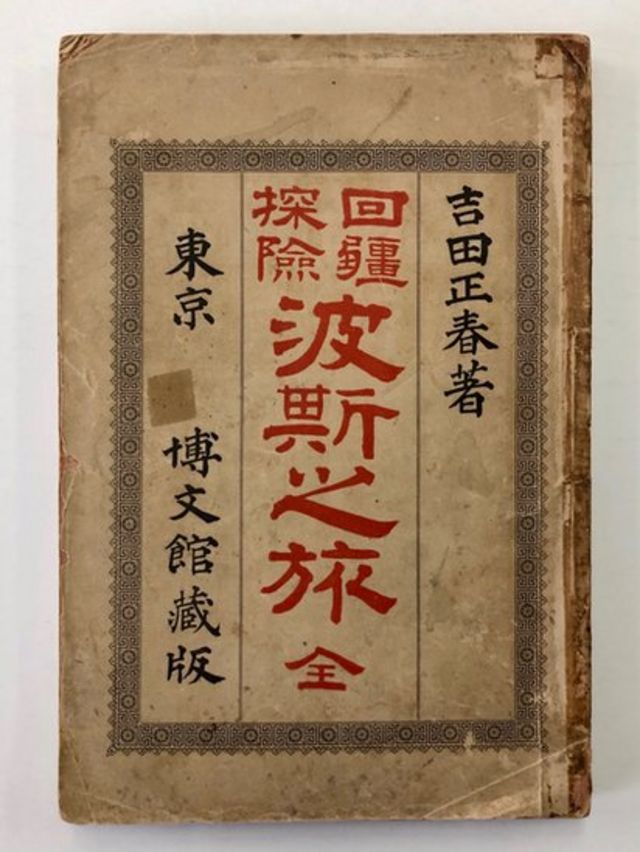 吉田正春著
回疆
探險
波斯之旅 全
東京 博文館蔵版